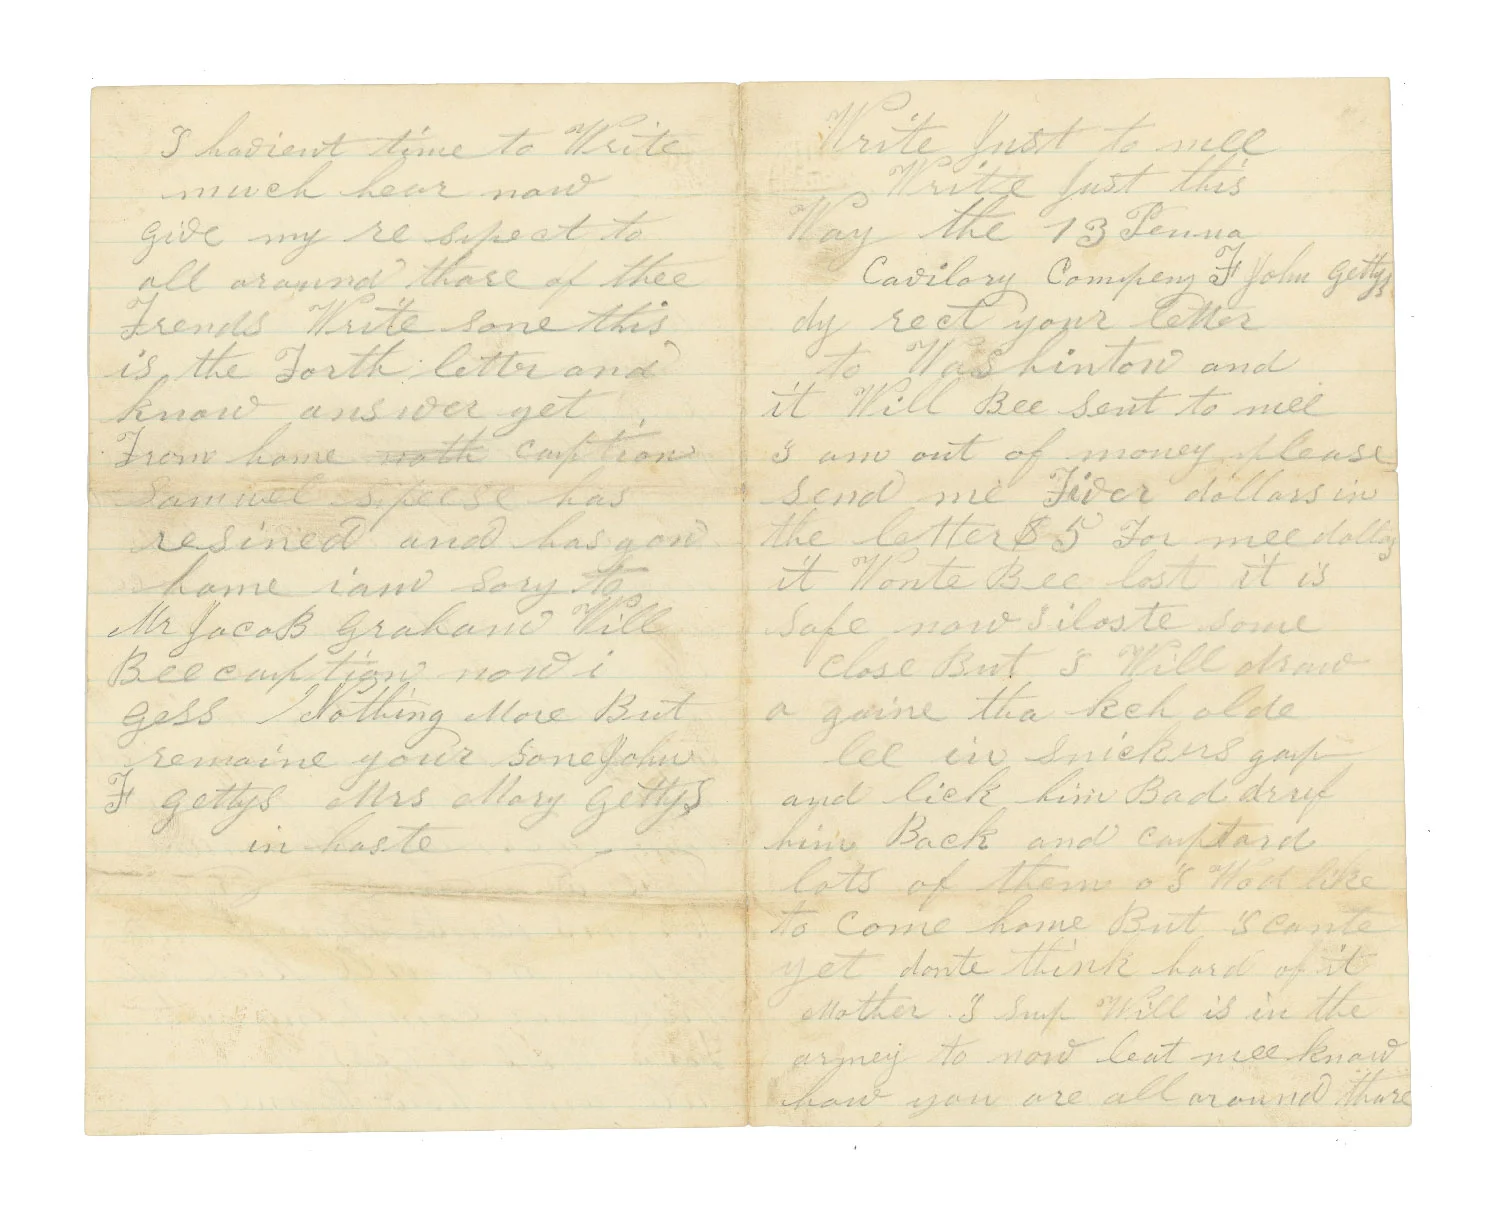 I havient time to Write
much hear now
give my re sipect to
all around thare of thee
Frends Write sone this
is the Forth letter and
know answer yet
From home noth caiption
Samuel sipeese has
resined and has gon
home iam sory to
Mr JacoB graham Will
Bee caiption now i
gess Nothing More But
remaine your sone John
F gettys Mrs Mary gettys
in haste
Write Just to mee
Write Just this
Way the 13 Penna
Cavilary Company F John gettys
dy rect your letter
to Washinton and
it Will Bee sent to mee
I am out of money please
send me Fiver dollars in
the letter $5 For mee dollag
it Wonte Bee lost it is
safe now I loste some
close But I Will draw
a gaine tha keh olde
lee in snickers gap
and lick him Bad druf
him Back and captard
lots of them o I Wod like
to come home But I cante
yet donte think hard of it
Mother I sup Will is in the
armey to now leat mee know
how you are all around thare